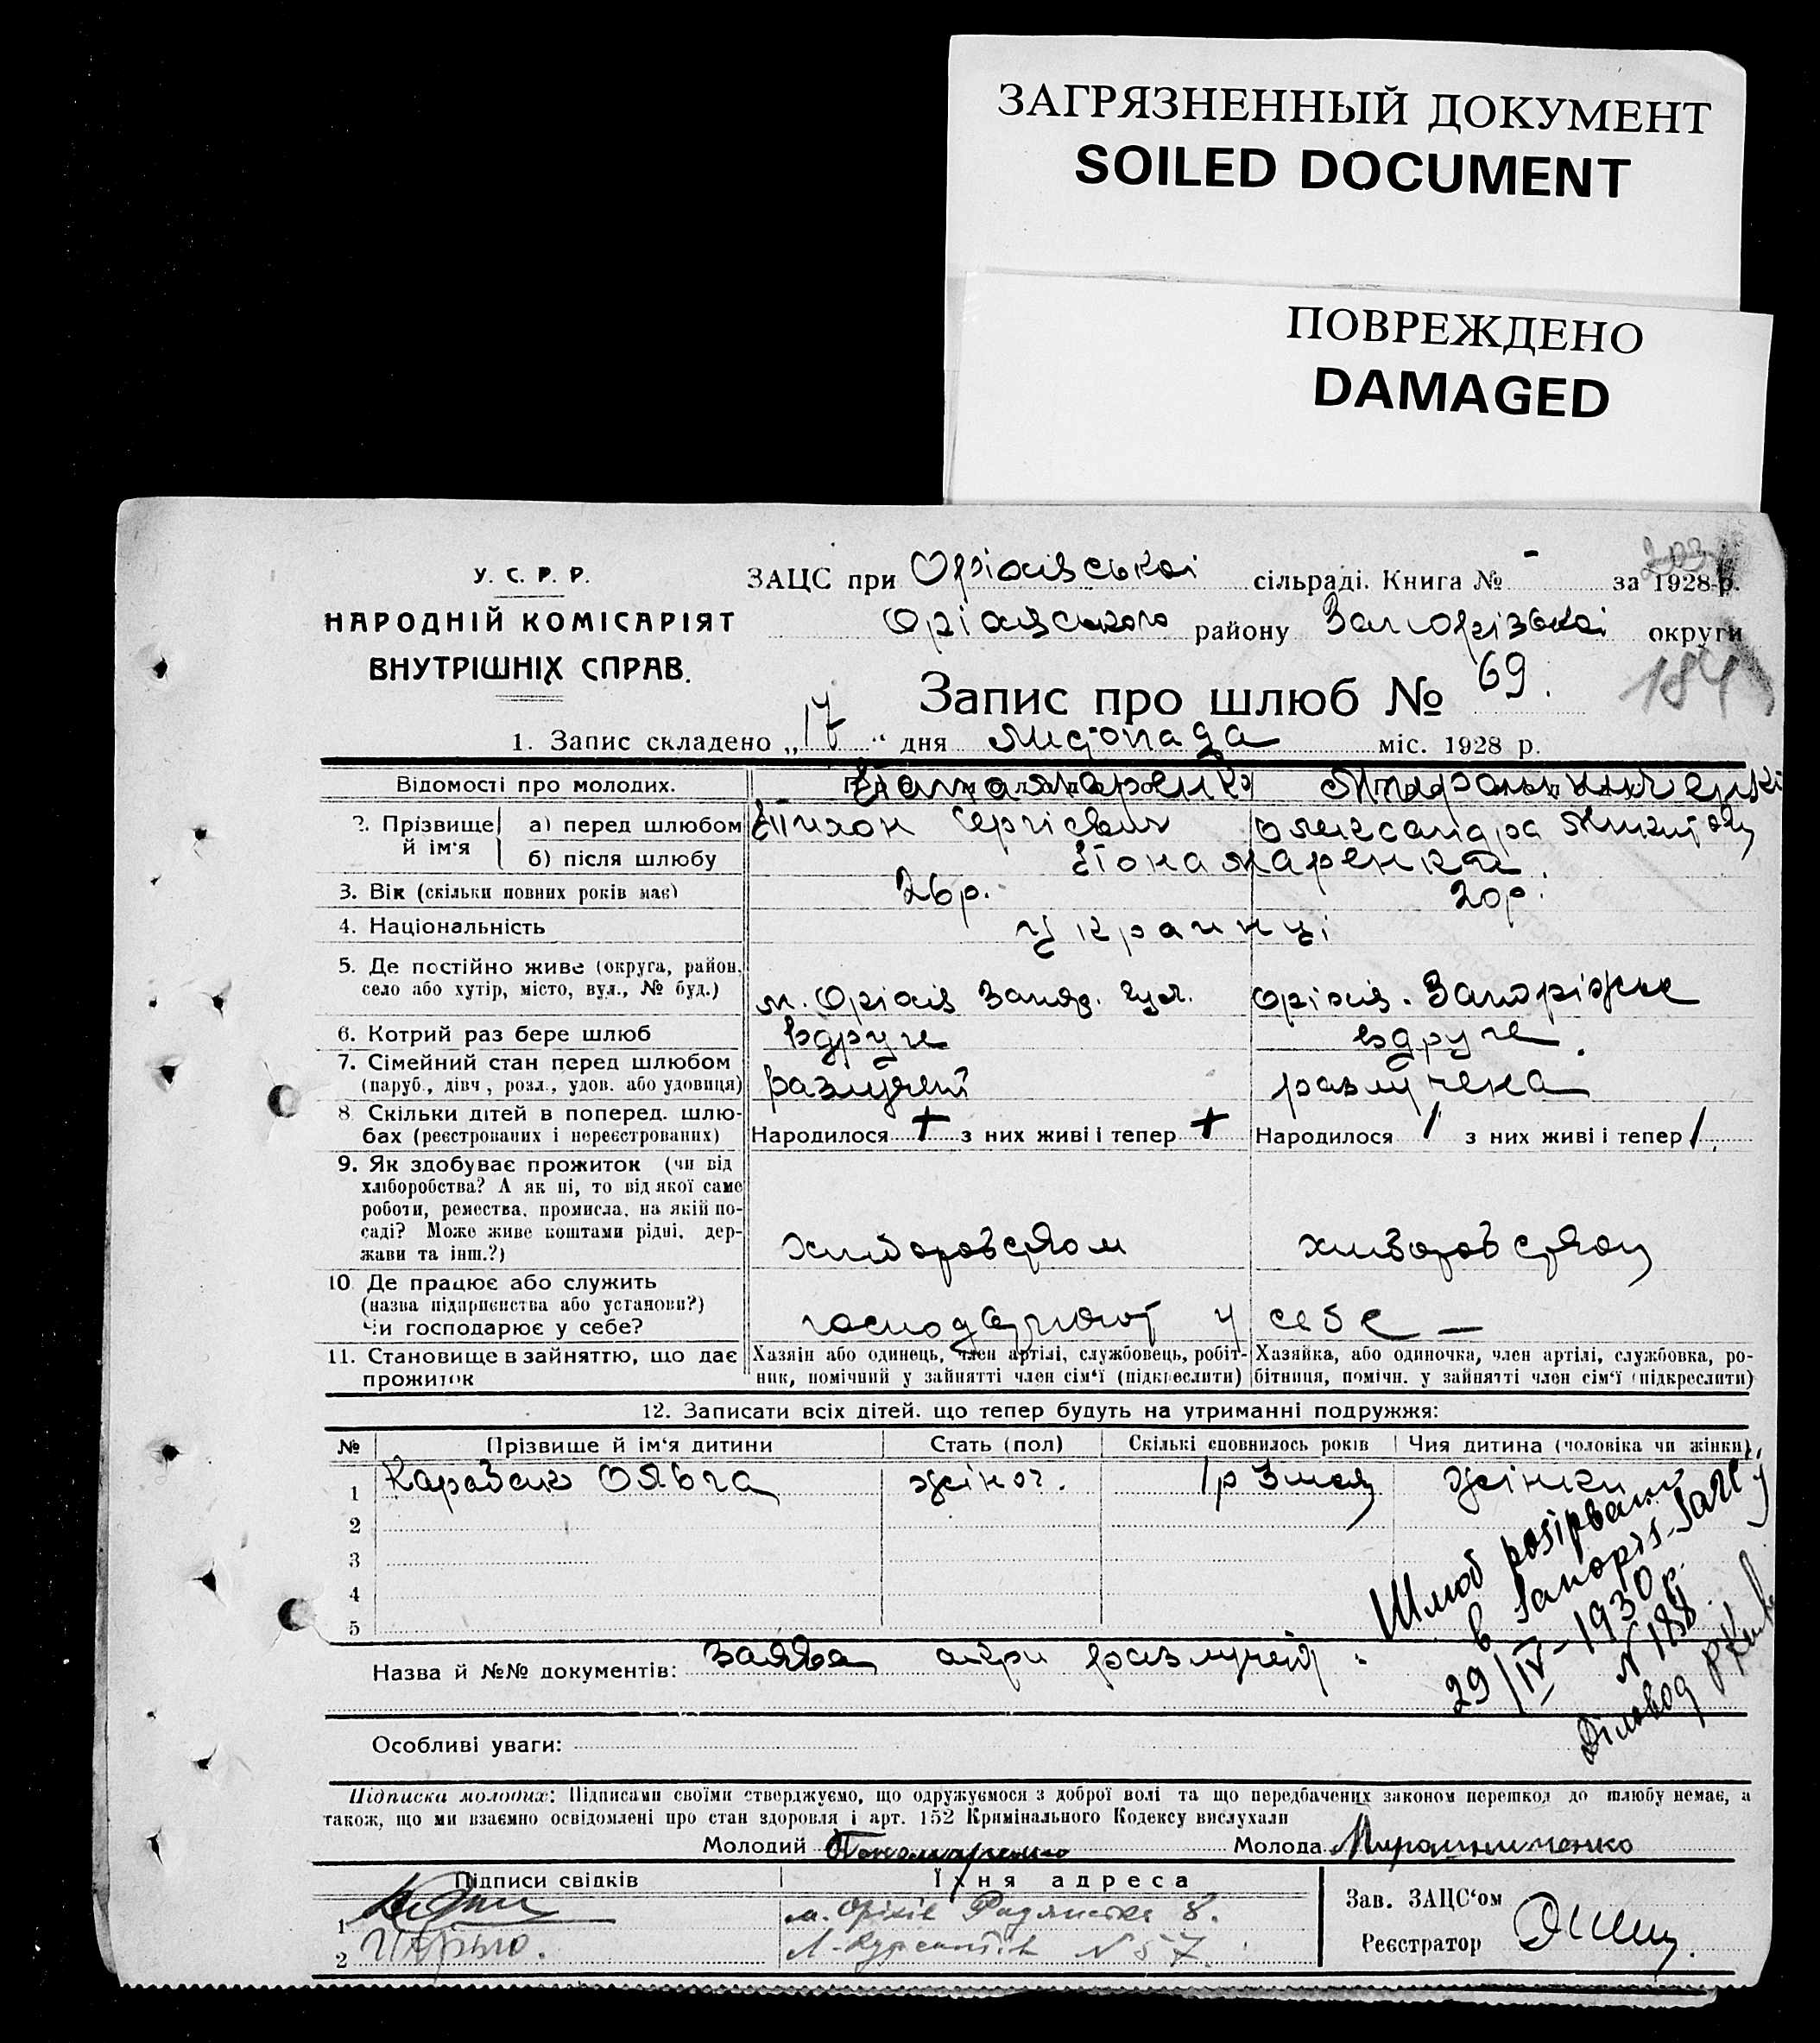 ЗАГРЯЗНЕННЫЙ ДОКУМЕНТ
SOILED DOCUMENT
ПОВРЕЖДЕНО
DAMAGED
203
У. С. Р. Р.
НАРОДНІЙ КОМІСАРІЯТ
ВНУТРІШНІХ СПРАВ.
ЗАЦС при Оріхівської сільраді. Книга № - за 1928 р.
Оріхівського району Запорізької округи
184
Запис про шлюб № 69.
1. Запис складено „17“ дня листопада міс. 1928 р.
Відомості про молодих.
Пономаренко Мирошниченко
2. Прізвище й ім‘я
а) перед шлюбом Тихон Сергієвич Олександра
б) після шлюбу Пономаренки
3. Вік (скільки повних років має) 26 р. 20 р.
4. Національність українці
5. Де постійно живе (округа, район,
село або хутір, місто, вул., № буд.) м. Оріхів Оріхів. Запоріжськ
6. Котрий раз бере шлюб вдруге вдруге.
7. Сімейний стан перед шлюбом
(паруб., дівч., розл., удов. або удовиця) разлучен разлучена
8. Скільки дітей в поперед. шлю-
бах (реєстрованих і нереєстрованих) Народилося + з них живі і тепер + Народилося 1 з них живі і тепер 1.
9. Як здобуває прожиток (чи від
хліборобства? А як ні, то від якої саме
роботи, ремества, промисла, на якій по-
саді? Може живе коштами рідні, дер-
жави та інш.?) хліборобством хліборобством
10. Де працює або служить
(назва підприємства або установи?)
Чи господарює у себе? господарюют у себе —
11. Становище в зайняттю, що дає
прожиток
Хазяїн або одинець, член артілі, службовець, робіт-
ник, помічний у зайнятті член сім‘ї (підкреслити)
Хазяйка, або одиночка, член артілі, службовка, ро-
бітниця, помічн. у зайнятті член сім‘ї (підкреслити)
12. Записати всіх дітей, що тепер будуть на утриманні подружжя:
№ Прізвище й ім‘я дитини Стать (пол) Скількі сповнилось років Чия дитина (чоловіка чи жінки)
1 Карабак Ольга жіноч. 1 р 3 міся жінки
2
3
4
5
Шлюб розірваний
в Запоріз.
29/IV-1930 р.
N 188
Діловод
Назва й №№ документів: заява
Особливі уваги:
Підписка молодих: Підписами своїми стверджуємо, що одружуємося з доброї волі та що передбачених законом перешкод до шлюбу немає, а
також, що ми взаємно освідомлені про стан здоровля і арт. 152 Кримінального Кодексу вислухали
Молодий Пономаренко Молода Мирошниченко
Підписи свідків Їхня адреса
1 м. Оріхів Радянська 8.
2 N 57.
Зав. ЗАЦС‘ом
Реєстратор